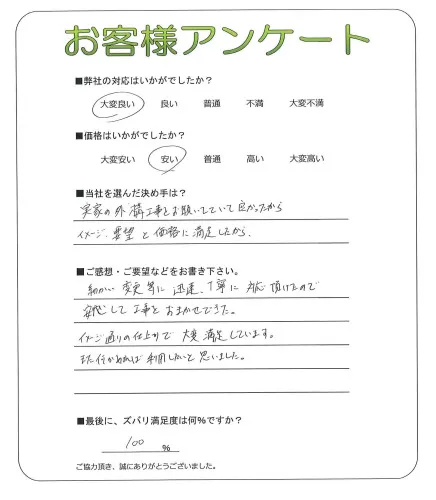 お客様アンケート
■弊社の対応はいかがでしたか？
大変良い 良い 普通 不満 大変不満
■価格はいかがでしたか？
大変安い 安い 普通 高い 大変高い
■当社を選んだ決め手は？
実家の外構工事をお願いしていて良かったから
イメージ、要望と価格に満足したから、
■ご感想・ご要望などをお書き下さい。
細かい変更等に迅速、丁寧に対応頂けたので
安心して工事をおまかせできた。
イメージ通りの仕上りで大変満足しています。
また何かあれば利用したいと思いました。
■最後に、ズバリ満足度は何%ですか？
100 %
ご協力頂き、誠にありがとうございました。